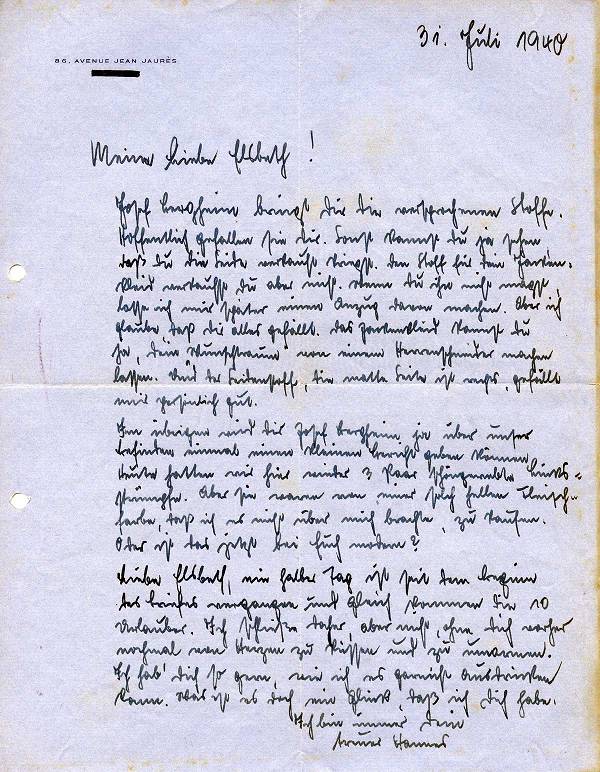 31. Juli 1940
86, AVENUE JEAN JAURÈS
Meine liebe Elsbeth!
Josef Bergheim bringt dir die versprochenen Stoffe.
Hoffentlich gefallen sie dir. Sonst kannst du ja sehen,
daß du die Seide verkauft kriegst. Den Stoff für dein Jacken-
kleid verkaufst du aber nicht. Wenn du ihn nicht magst,
lasse ich mir später einen Anzug davon machen. Aber ich
glaube daß dir alles gefällt. Das Jackenkleid kannst du
ja, dein Wunschtraum von einem Herrenschneider machen
lassen. Und der Seidenstoff, die matte Seite ist rechts, gefällt
mir persönlich gut.
Im übrigen wird dir Josef Bergheim ja über unser
Befinden einmal einen kleinen Bericht geben können.
Heute hatten wir hier wieder 3 Paar
strümpfe. Aber sie waren von einer solch hellen fleisch-
farbe, daß ich es nicht über mich brachte, zu kaufen.
Oder ist das jetzt bei Euch modern?
Liebe Elsbeth, ein halber Tag ist seit dem Beginn
des Briefes vergangen und gleich kommen die 10
Urlauber. Ich schließe daher, aber nicht ohne Dich vorher
nochmal von Herzen zu küssen und zu umarmen.
Ich hab' Dich so gern, wie ich es garnicht ausdrücken
kann. Was ist es doch ein Glück, daß ich Dich habe.
Ich bin immer Dein
treuer Hannes